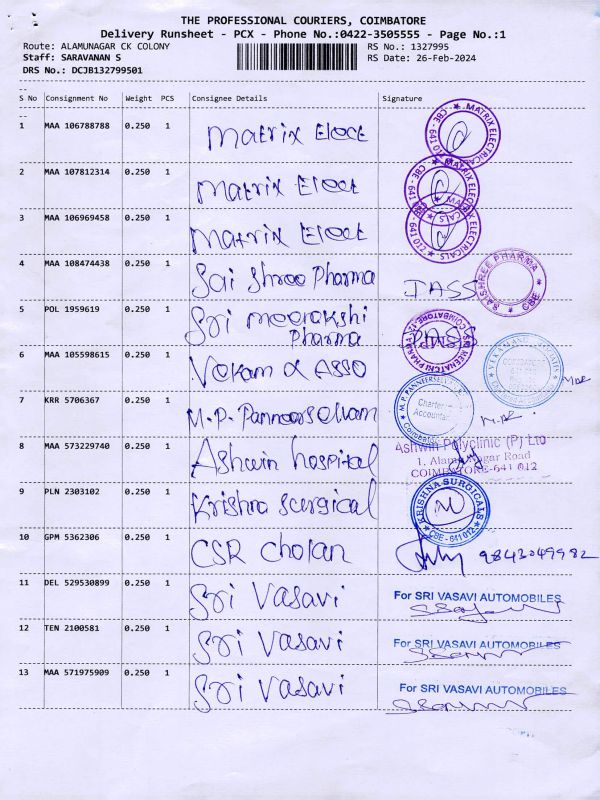 THE PROFESSIONAL COURIERS, COIMBATORE
Delivery Runsheet - PCX - Phone No.:0422-3505555 - Page No.:1
Route: ALAMUNAGAR CK COLONY RS No.: 1327995
Staff: SARAVANAN S RS Date: 26-Feb-2024
DRS No.: DCJB132799501
S No Consignment No Weight PCS Consignee Details Signature
1 MAA 106788788 0.250 1 Matrix Elect
2 MAA 107812314 0.250 1 Matrix Elect
3 MAA 106969458 0.250 1 Matrix Elect
4 MAA 108474438 0.250 1 Sai Shree Pharma
5 POL 1959619 0.250 1 Sri meenakshi
Pharma
6 MAA 105598615 0.250 1 Vekam & ASSO
7 KRR 5706367 0.250 1 M.P. Panneerselvam
Chartered
Accountant
8 MAA 573229740 0.250 1 Ashwin hospital
Ashwin Polyclinic (P) Ltd
1, Alamu Nagar Road
COIMBATORE-641 012
9 PLN 2303102 0.250 1 Krishna surgical
KRISHNA SURGICALS
CBE - 641 012
10 GPM 5362306 0.250 1 CSR cholan 9843049982
11 DEL 529530899 0.250 1 Sri Vasavi For SRI VASAVI AUTOMOBILES
12 TEN 2100581 0.250 1 Sri Vasavi For SRI VASAVI AUTOMOBILES
13 MAA 571975909 0.250 1 Sri Vasavi For SRI VASAVI AUTOMOBILES